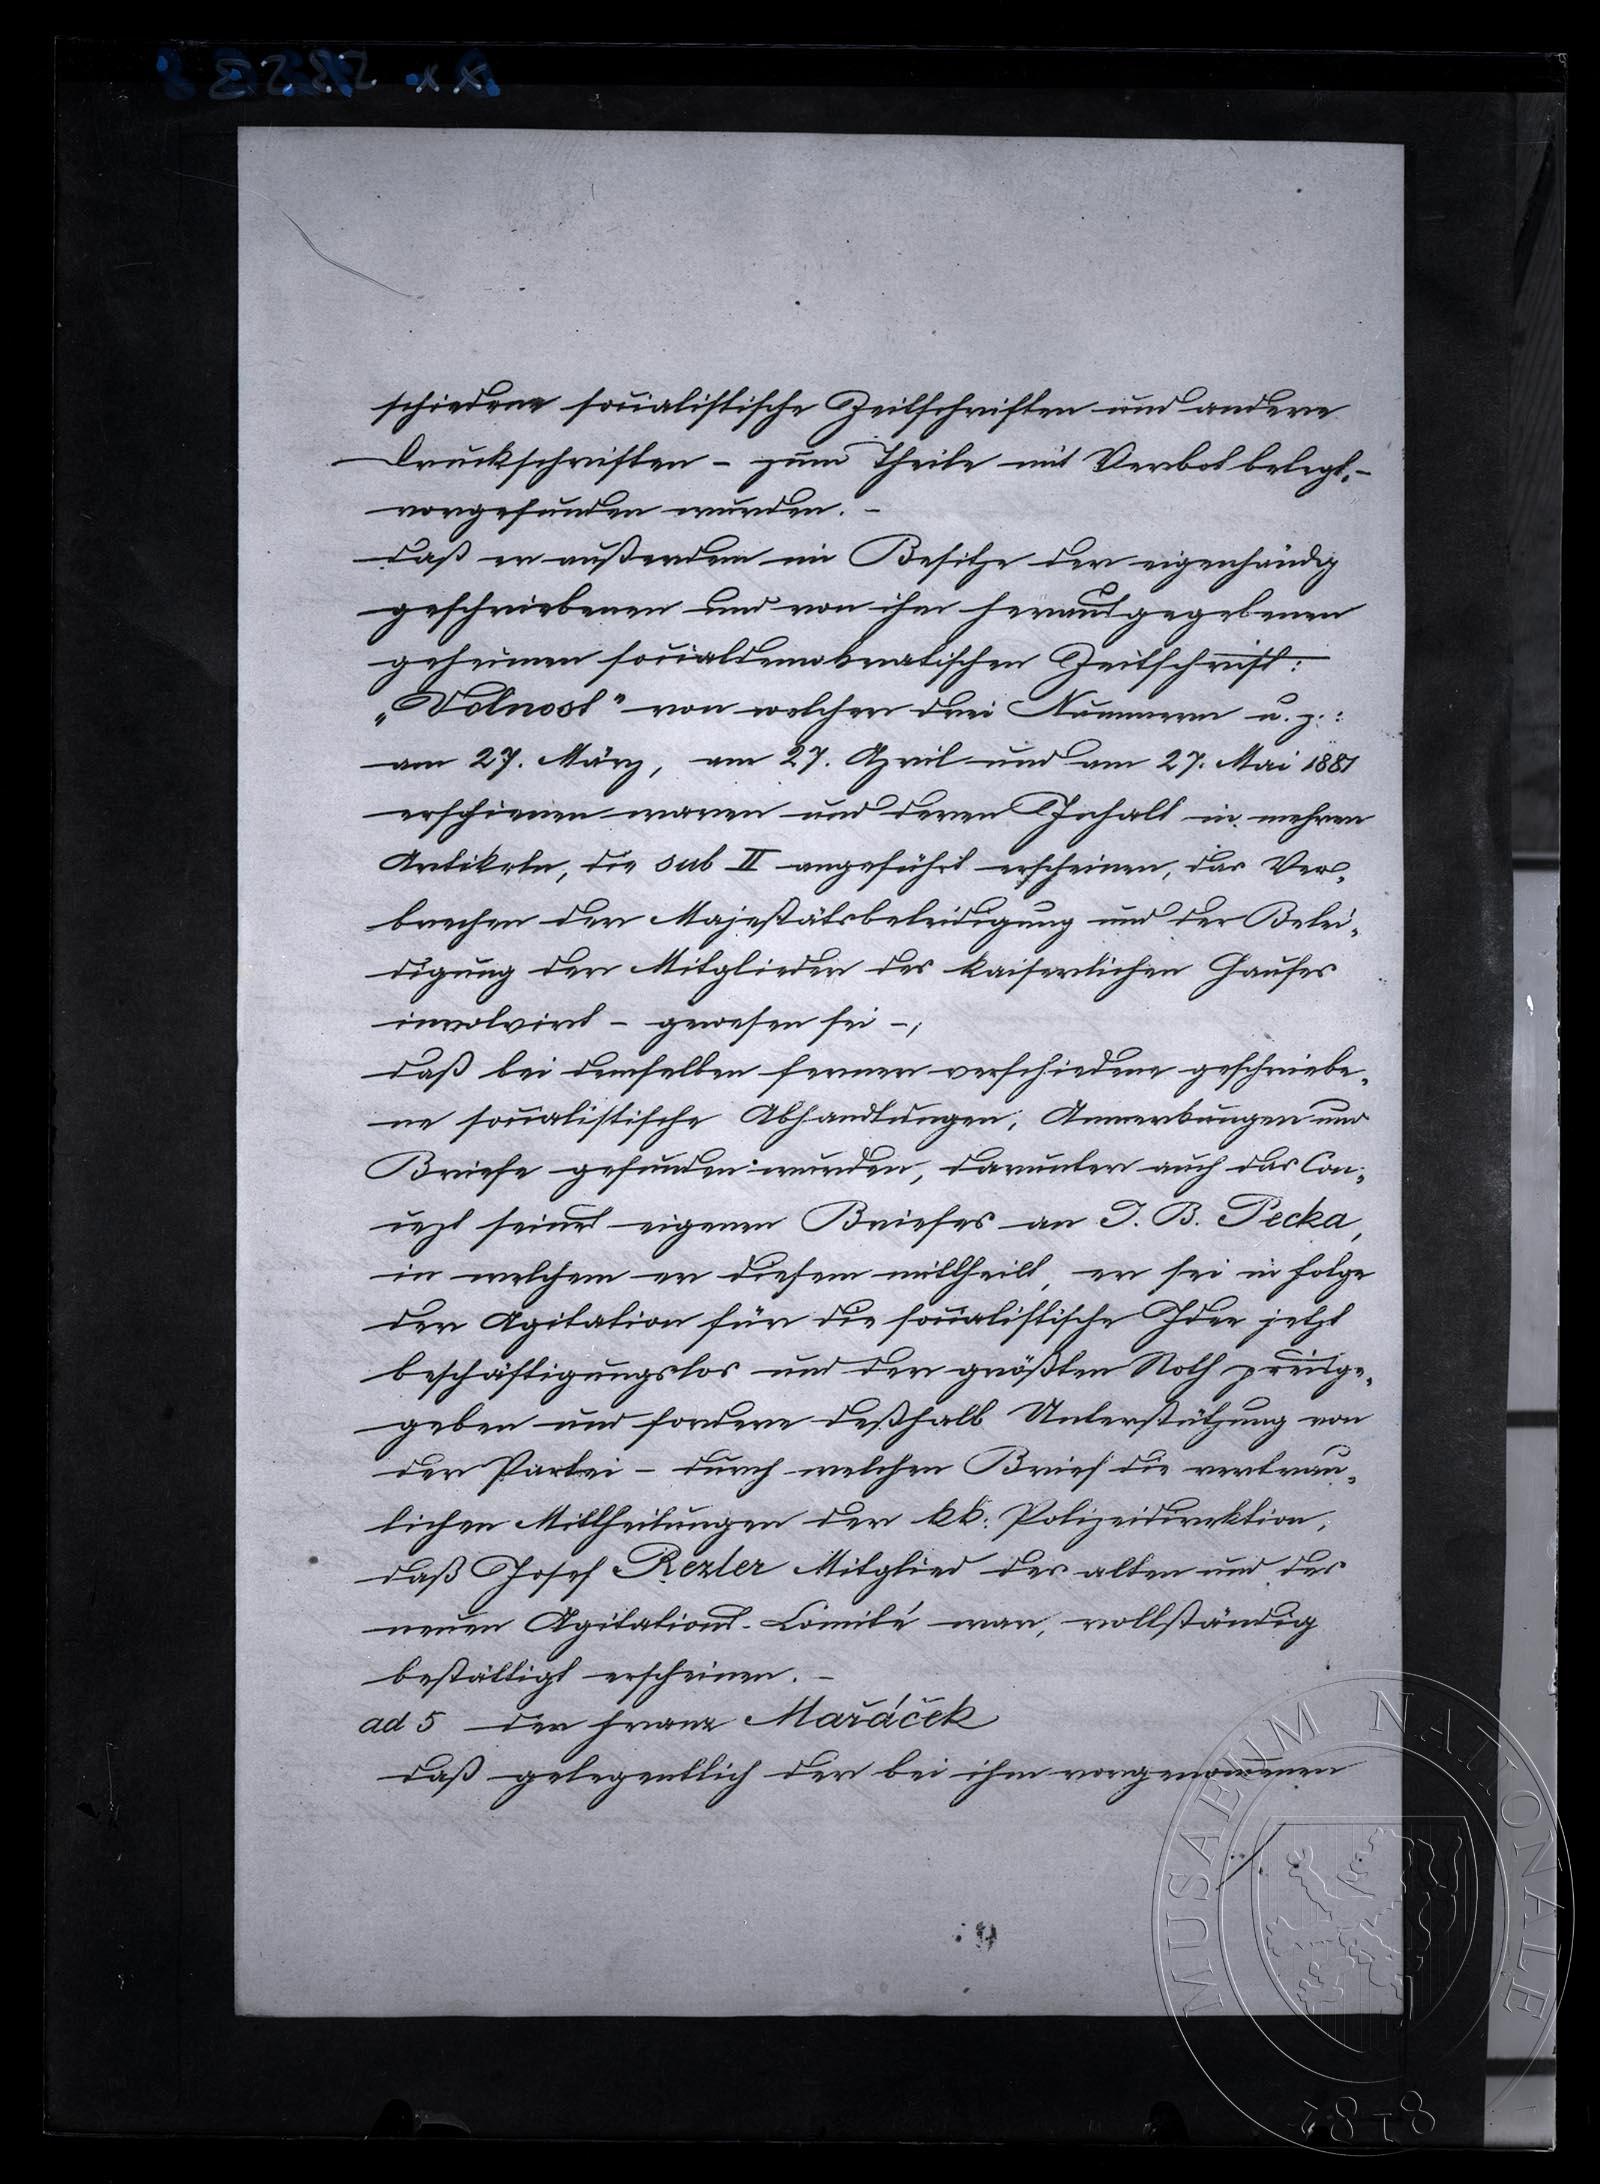 schiedene socialistische Zeitschriften und andere
Druckschriften – zum Theile mit Verbot belegt, –
vorgefunden wurden. –
daß er außerdem im Besitze der eigenhändig
geschriebenen und von ihm herausgegebenen
geheimen socialdemokratischen Zeitschrift:
„Volnost" von welcher drei Nummern u. z.:
am 27. März, am 27. April und am 27. Mai 1881
erschienen waren und deren Inhalt in mehren
Artikeln, die sub II angeführt erscheinen, das Ver„
brechen der Majestätsbeleidigung und der Belei„
digung der Mitglieder des kaiserlichen Hauses
involvirt – gewesen sei –;
daß bei demselben ferner verschiedene geschriebe„
ne socialistische Abhandlungen, Anmerkungen und
Briefe gefunden wurden, darunter auch das Con„
cept seines eigenen Briefes an J. B. Pecka,
in welchem er diesem mittheilt, er sei in Folge
der Agitation für die socialistische Idee jetzt
beschäftigungslos und der größten Noth preisge„
geben und fordere deßhalb Unterstützung von
der Partei – durch welchen Brief die vertrau„
lichen Mittheilungen der kk: Polizeidirektion,
daß Josef Rezler Mitglied des alten und des
neuen Agitations-Comité war, vollständig
bestättigt erscheinen. –
ad 5 der Franz Mařáček
daß gelegentlich der bei ihm vorgenommenen
MUSAEUM NATIONALE
1818